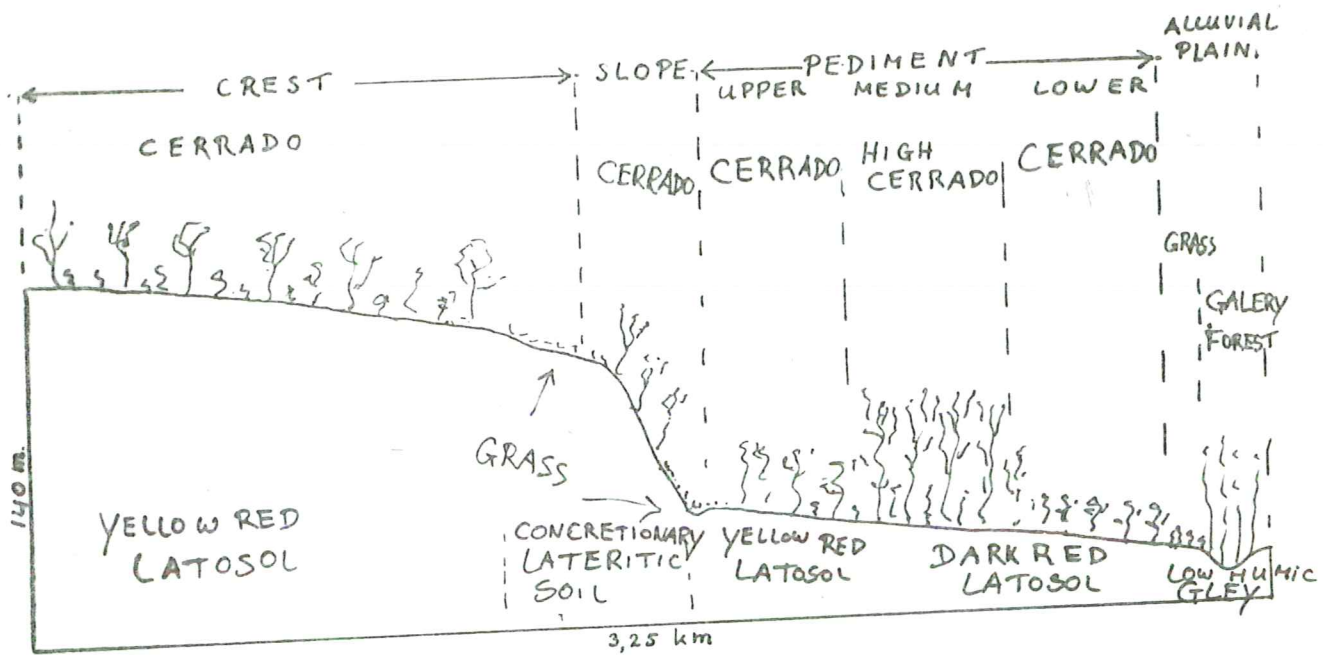 ALLUVIAL
PLAIN.
CREST
SLOPE
PEDIMENT
UPPER MEDIUM LOWER
CERRADO
CERRADO
CERRADO
HIGH
CERRADO
CERRADO
GRASS
GALERY
FOREST
GRASS
140 m.
YELLOW RED
LATOSOL
CONCRETIONARY
LATERITIC
SOIL
YELLOW RED
LATOSOL
DARK RED
LATOSOL
LOW HUMIC
GLEY
3,25 km